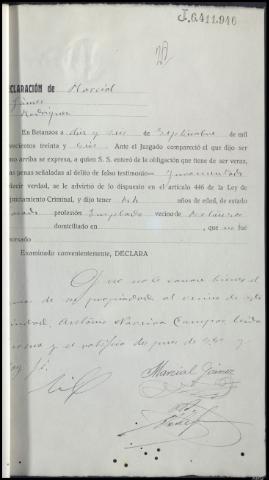 J.6411.940
DECLARACIÓN de Marcial
Gómez
Rodríguez
En Betanzos a diez y seis de Septiembre de mil
novecientos treinta y seis. Ante el Juzgado compareció el que dijo ser
como arriba se expresa, a quien S. S. enteró de la obligación que tiene de ser veraz,
las penas señaladas al delito de falso testimonio Juramentado
decir verdad, se le advirtió de lo dispuesto en el artículo 446 de la Ley de
Enjuiciamiento Criminal, y dijo tener 44 años de edad, de estado
casado profesión Empleado vecino de Betanzos
domiciliado en , que no fue
procesado
Examinado convenientemente, DECLARA
Que no le conoce bienes
de su propiedad al vecino de esta
ciudad, Antonio Campos, leída
y se ratifica
Marcial Gómez